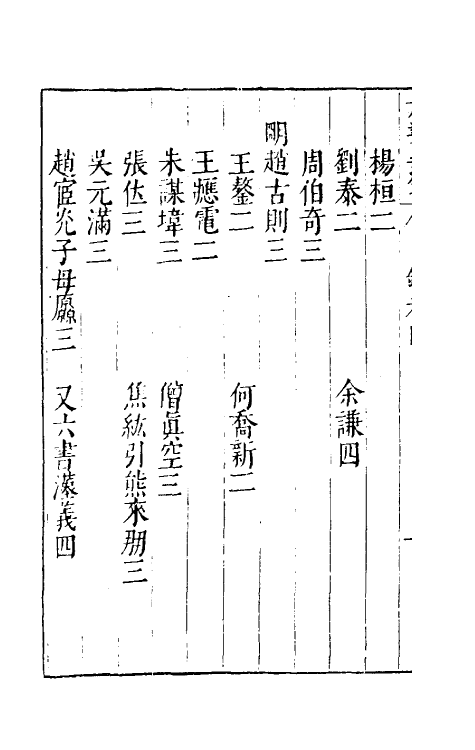 楊桓二
劉泰二 余謙四
周伯奇三
明趙古則三
王鏊二 何喬新二
王應電二
朱謀㙔三 僧眞空三
張位三 焦紘引熊來朋三
吳元滿三
趙宧光子母原三 又六書漢義四